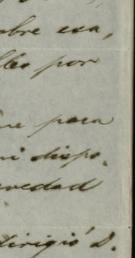 obre esa,
lles por
ue para
ni dispo-
vedad
dirigió D.